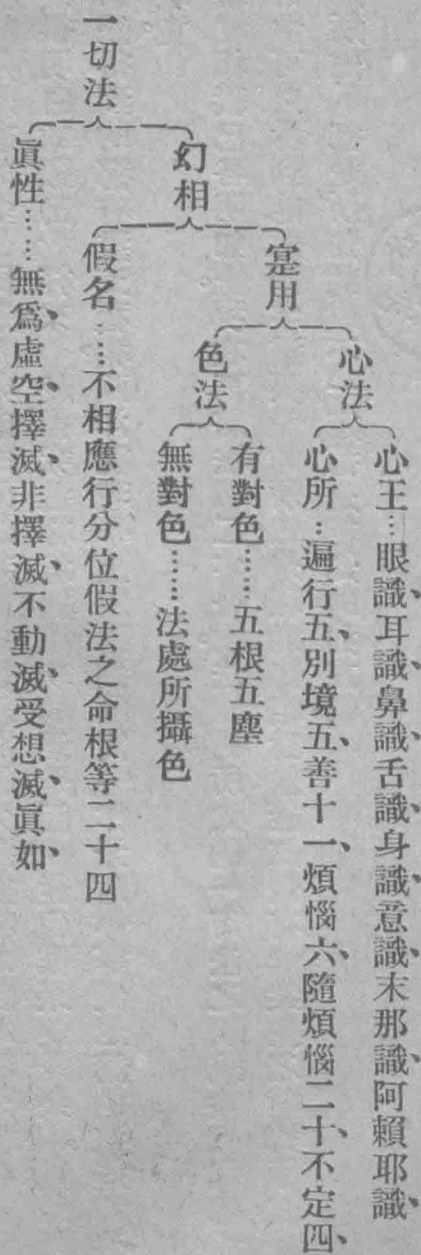 一切法
幻相
寔用
心法
心王…眼識、耳識、鼻識、舌識、身識、意識、末那識、阿賴耶識、
心所…遍行五、別境五、善十一、煩惱六、隨煩惱二十、不定四、
色法
有對色……五根五塵
無對色……法處所攝色
假名……不相應行分位假法之命根等二十四
眞性……無爲、虛空、擇滅、非擇滅、不動滅、受想滅、眞如、